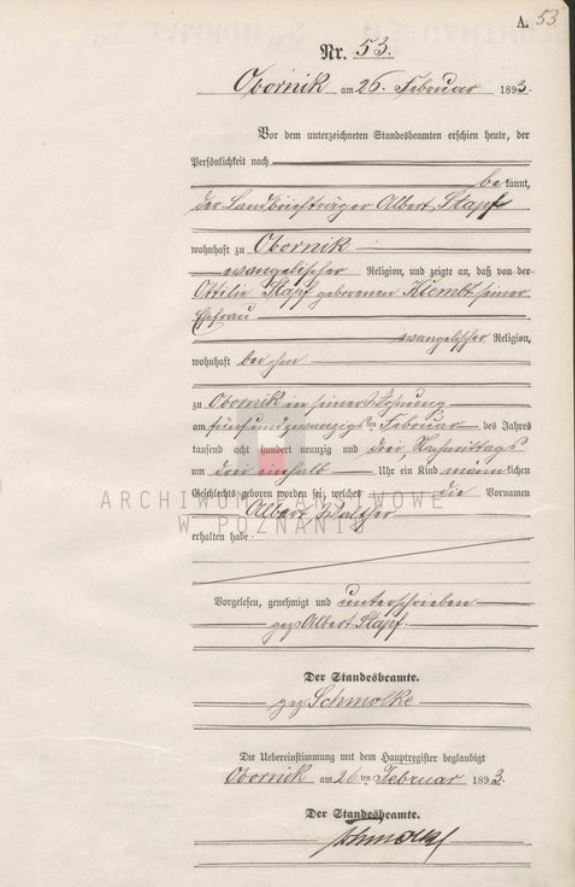 A. 53
Nr. 53.
Obornik am 26. Februar 1893.
Vor dem unterzeichneten Standesbeamten erschien heute, der
Persönlichkeit nach
bekannt,
der Landbriefträger Albert Stapf
wohnhaft zu Obornik
evangelischer Religion, und zeigte an, daß von der
Ottilie Stapf geborenen Klembt seiner
Ehefrau
evangelischer Religion,
wohnhaft bei ihm
zu Obornik in seiner Wohnung
am fünfundzwanzigsten Februar des Jahres
tausend acht hundert neunzig und drei, Nachmittags
um drei einhalb Uhr ein Kind männlichen
Geschlechts geboren worden sei, welches die Vornamen
ARCHIWUM PAŃSTWOWE
W POZNANIU
Albert Walther
erhalten habe.
Vorgelesen, genehmigt und unterschrieben
gez. Albert Stapf.
Der Standesbeamte.
gez. Schmolke
Die Uebereinstimmung mit dem Hauptregister beglaubigt
Obornik am 26ten Februar 1893.
Der Standesbeamte.
Schmolke